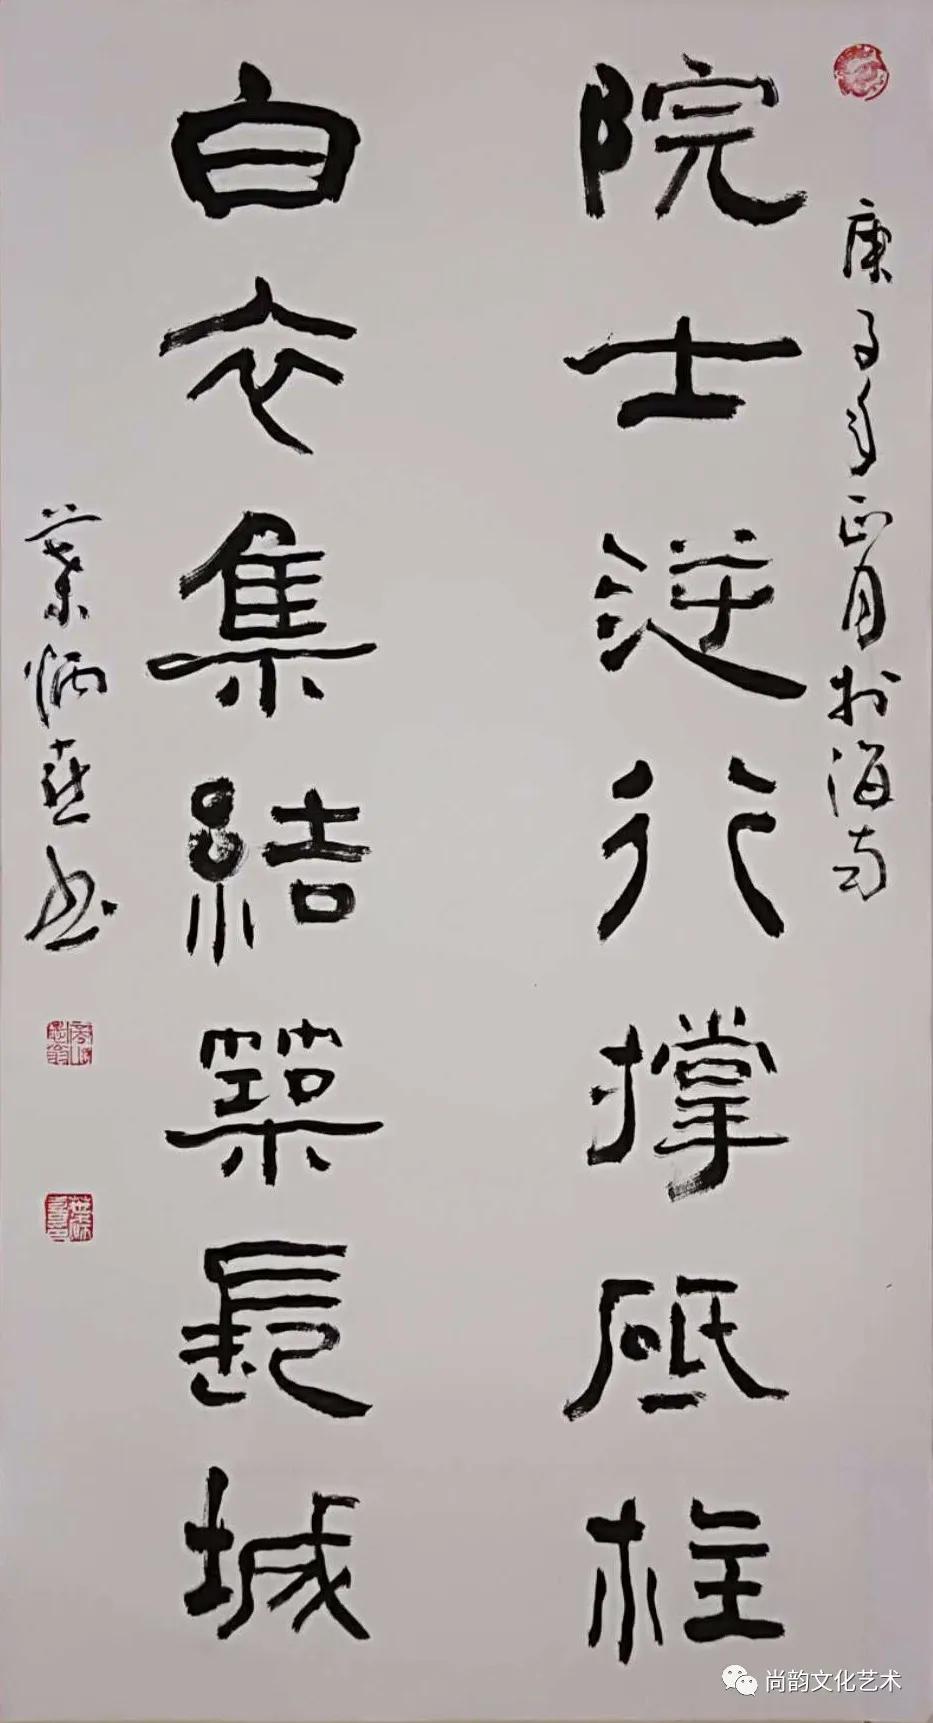 庚子年正月於海南
院士逆行撑砥柱
白衣集結築長城
葉炳喜书
尚韵文化艺术